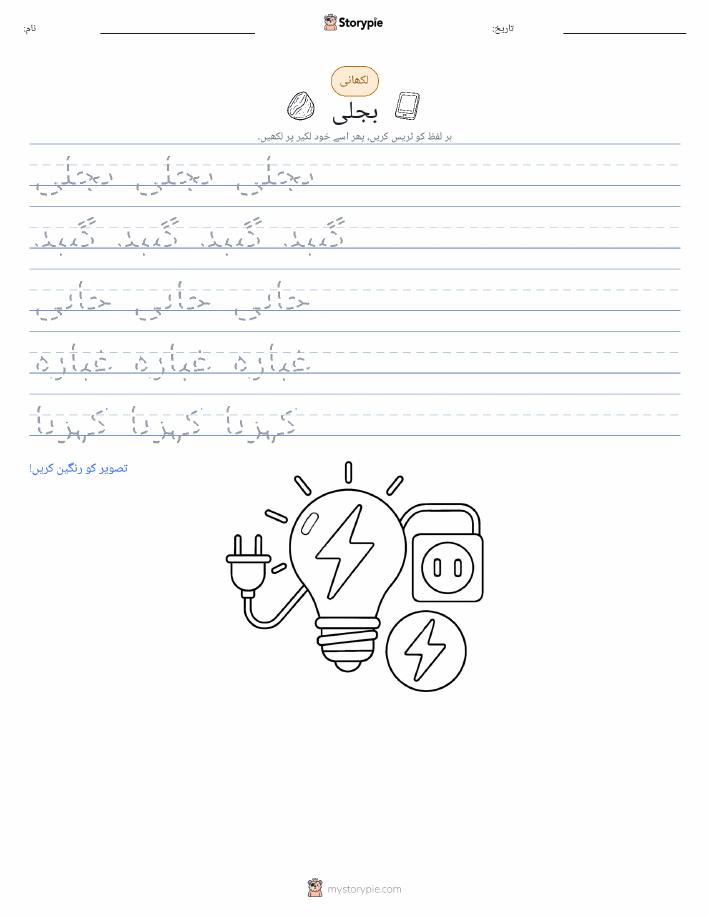 نام: Storypie تاریخ:
لکھائی
بجلی
ہر لفظ کو ٹریس کریں، پھر اسے خود لکیر پر لکھیں۔
بجلی بجلی بجلی
گنبد گنبد گنبد گنبد
غبارہ غبارہ غبارہ
کہربا کہربا کہربا
تصویر کو رنگین کریں!
mystorypie.com